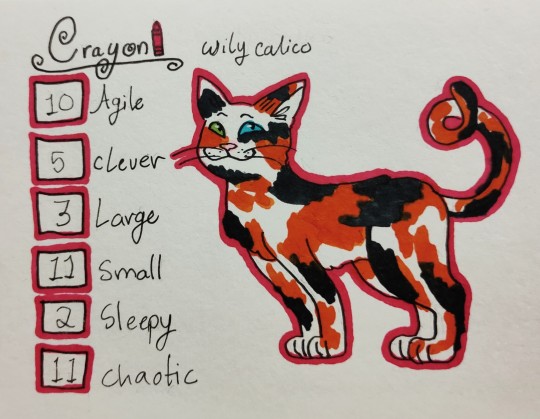 Crayon
wily calico
10 Agile
5 clever
3 Large
11 Small
2 Sleepy
11 chaotic